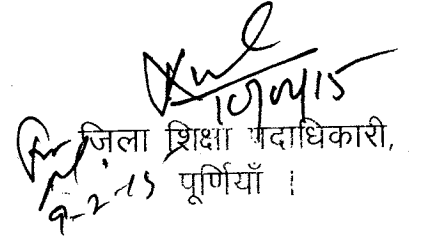 10/02/15
जिला शिक्षा पदाधिकारी,
9-2-15 पूर्णियाँ ।